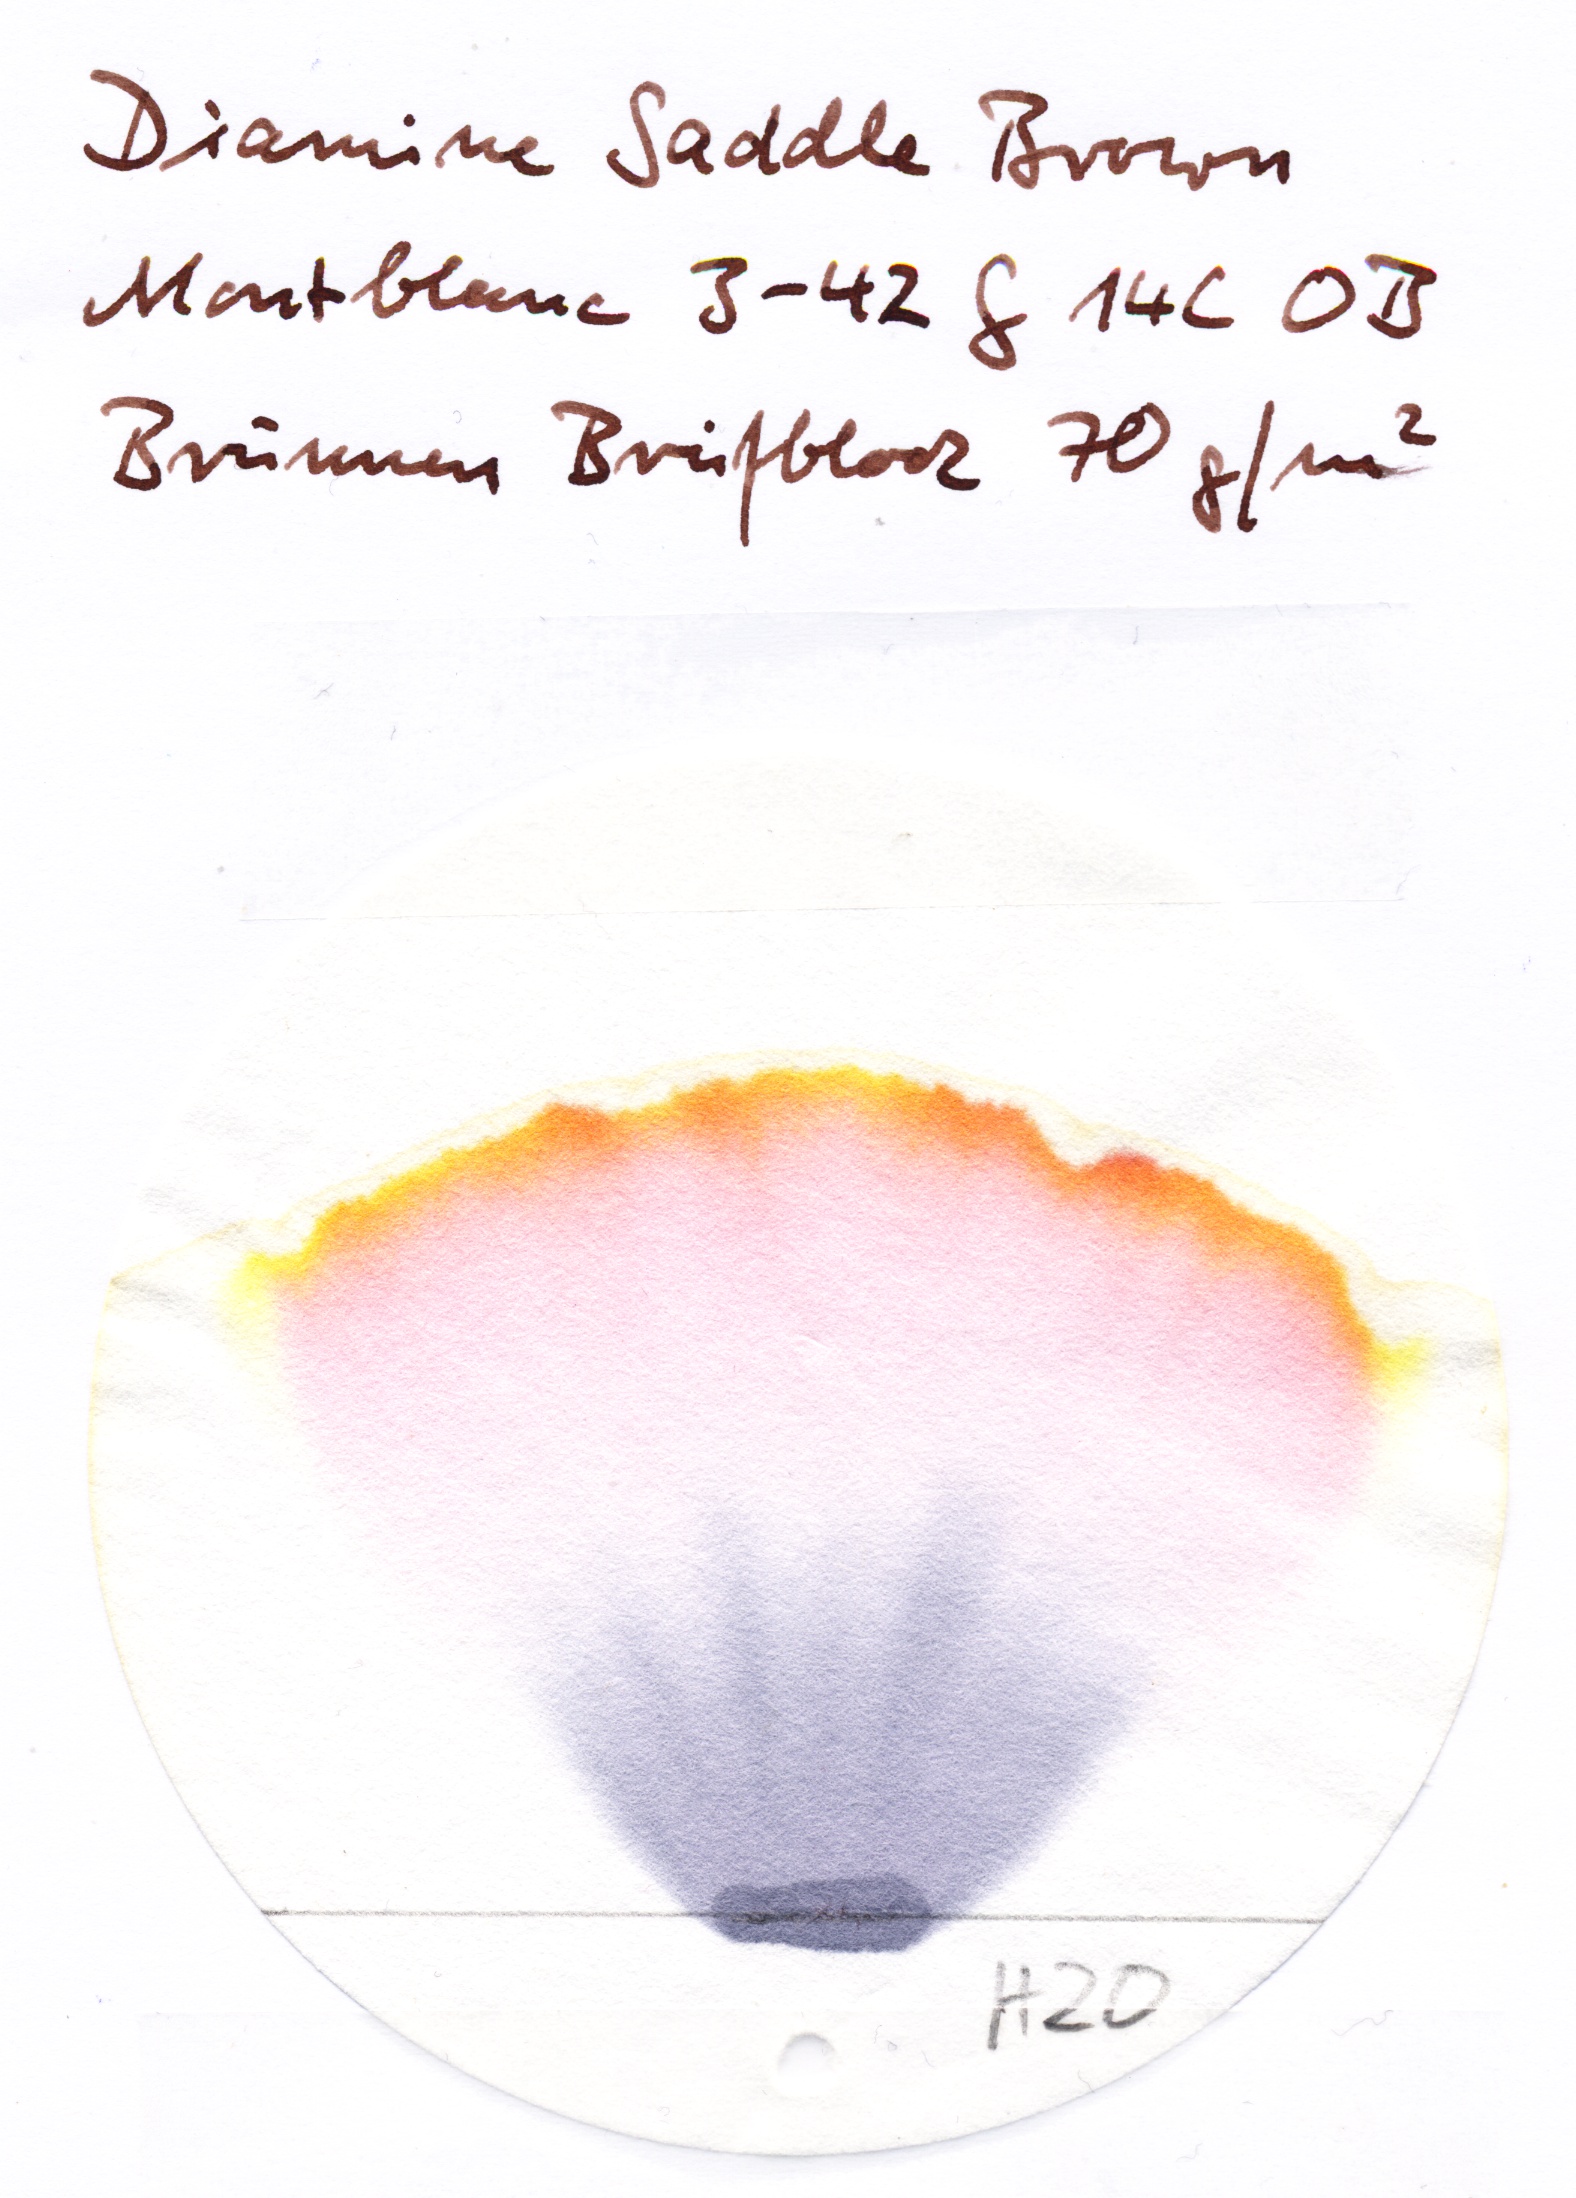 Diamine Saddle Brown
Montblanc 3-42 G 14C OB
Brunnen Briefblock 70 g/m²
H2O